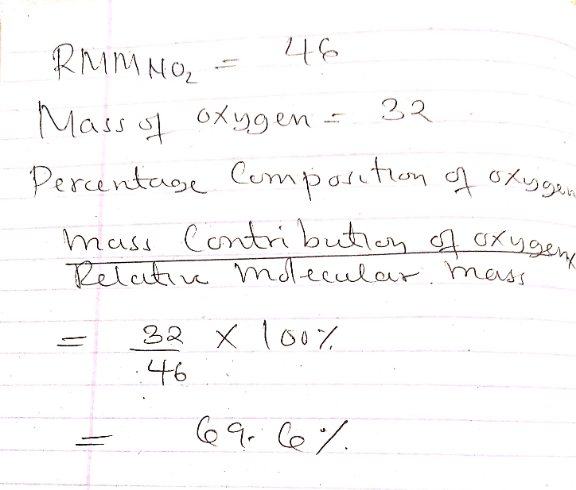 RMM NO₂ = 46
Mass of oxygen = 32
Percentage Composition of oxygen
mass Contribution of oxygen
Relative molecular mass
= 32 × 100%
46
= 69.6%